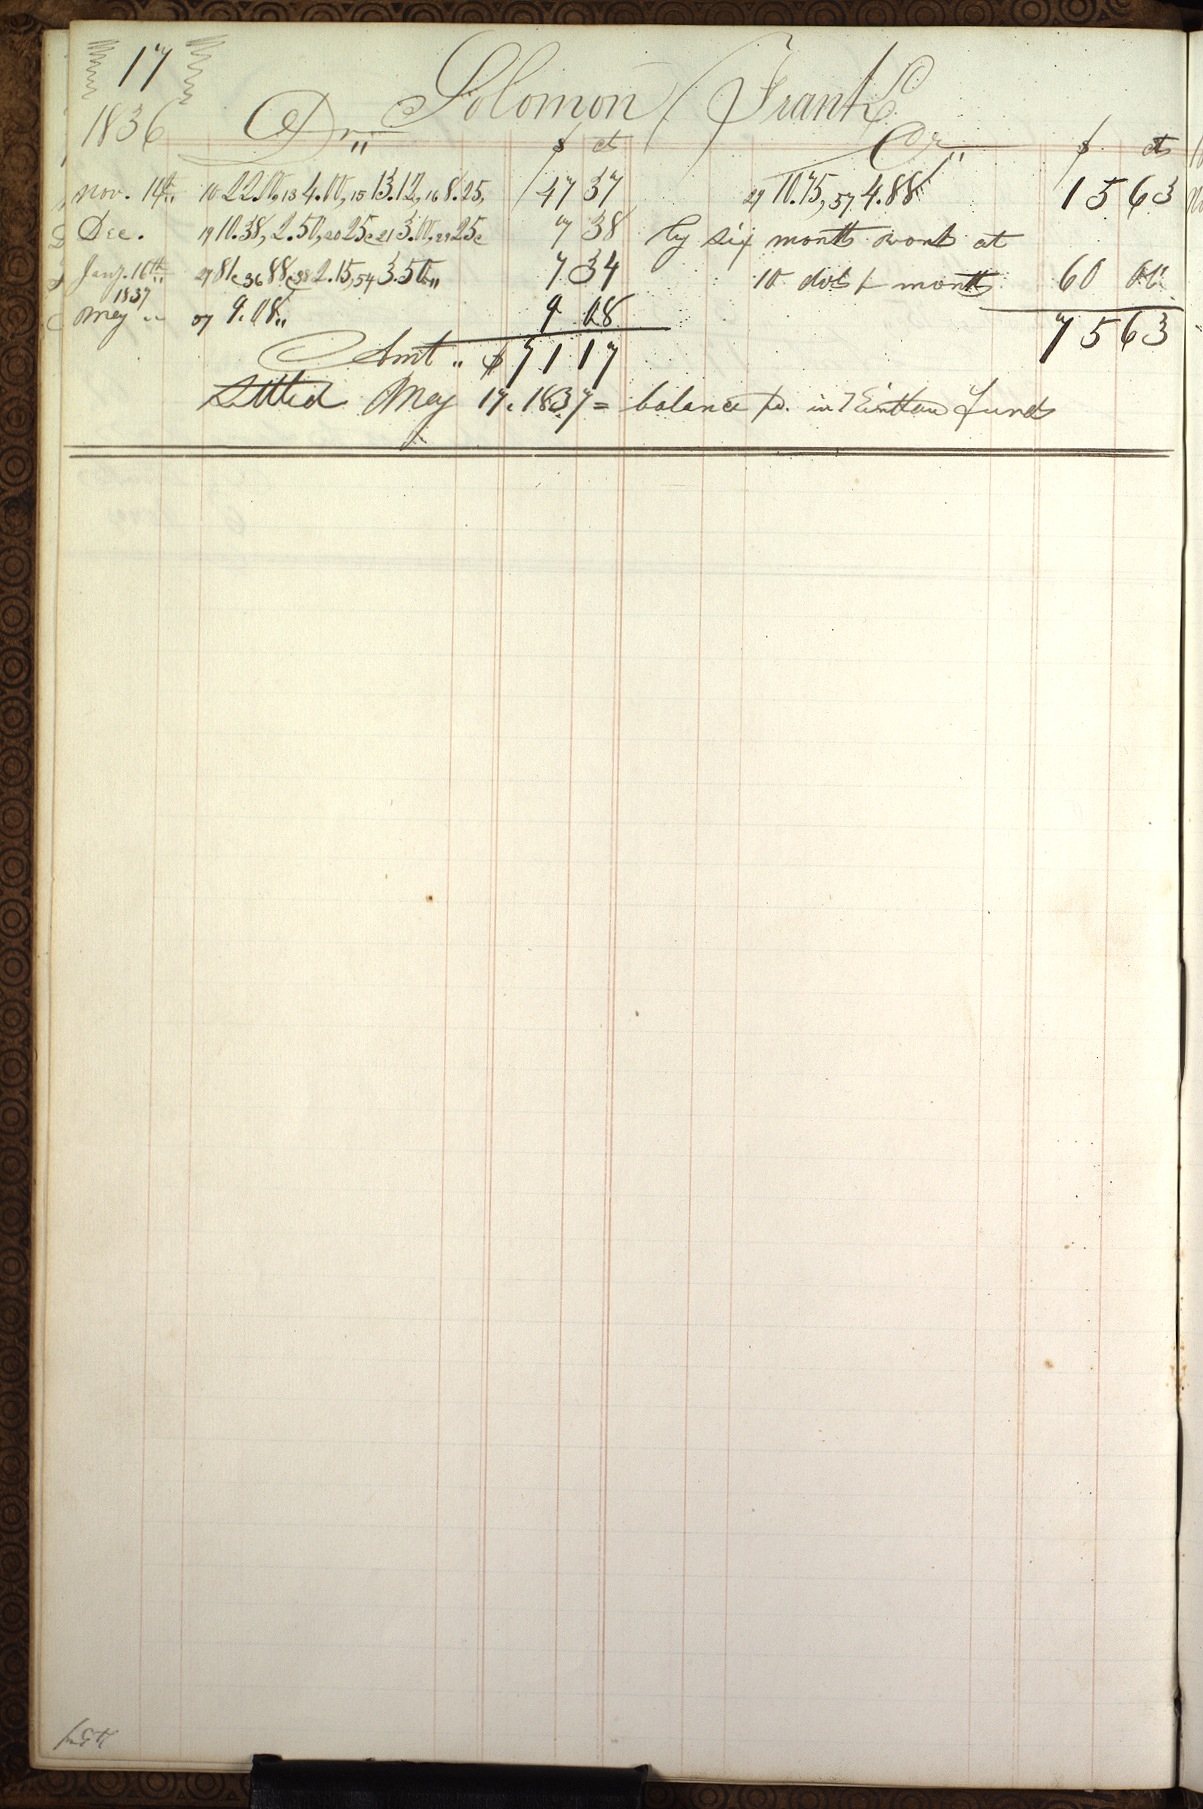 17
Solomon Frank
1836 Dr,, Cr,,
$ ct $ cts
Nov. 10th,, 10 22.00, 13 4.00, 15 13.12, 16 8.25, 47 37 27 10.75, 57 4.88 15 63
Dec. 19 10.38, 2.50, 20 25c 21 3.00, 25c 7 38 by six month work at
Jany. 16th,, 27 81c 36 88c 38 2.15, 54 3.50,, 7 34 10 dols p month 60 00
1837
May ,, 57 9.08,, 9 08 75 63
Amt ,, $71 17
Settled May 17. 1837 = balance pd. in funds